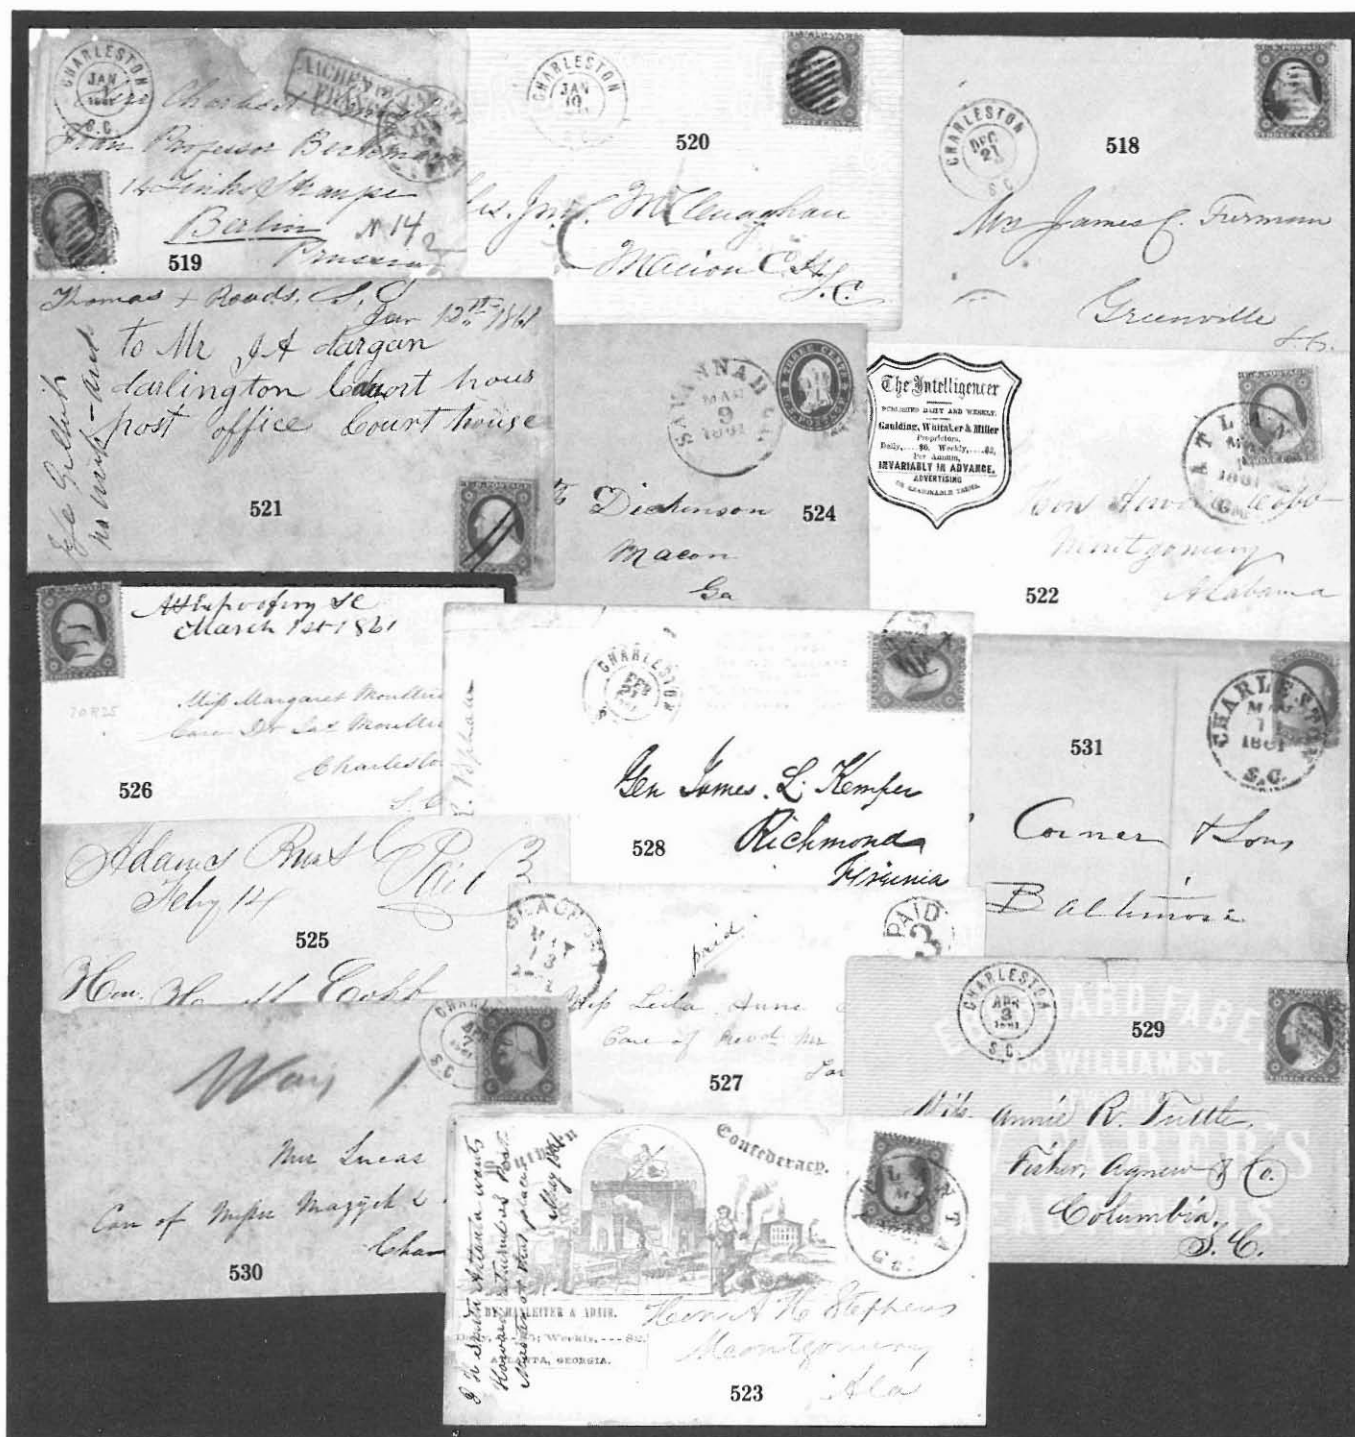 CHARLESTON
JAN
1861
S.C.
AACHEN
FRANCO
Frau Professor
14 Links Strasse
Berlin
Prussia
N 14
519
CHARLESTON
JAN
10
520
McClenaghan
Marion C.H.
S.C.
U.S. POSTAGE
THREE CENTS
CHARLESTON
DEC
21
S C
518
Mrs James C. Furman
Greenville
S.C.
Thomas + Roads, S, C
Jan 12th 1861
to Mr J A dargan
darlington Court hous
post office Court house
521
U.S. POSTAGE
SAVANNAH
MAR
9
1861
THREE CENTS
Dickinson
Macon
Ga
524
The Intelligencer
PUBLISHED DAILY AND WEEKLY.
Gaulding, Whitaker & Miller
Proprietors.
Daily,....$6, Weekly,....$2,
Per Annum,
INVARIABLY IN ADVANCE.
ADVERTISING
ON REASONABLE TERMS.
ATLAN
1861
Ga
Hon Howell Cobb
Montgomery
Alabama
522
March 1st 1861
Miss Margaret Moultrie
Care Dr Moultrie
Charleston
S.C.
526
CHARLESTON
FEB
21
1861
Gen James. L. Kemper
Richmond
Virginia
528
CHARLESTON
1861
S.C.
531
Corner & Sons
Baltimore
Adams Run S C
Feby 14
Paid 3
525
Hon. Cobb
MAY
13
paid
PAID
3
Miss Leila Anne
Care of Revd Mr
527
CHARLESTON
APR
3
1861
S C
529
EBERHARD FABER
133 WILLIAM ST.
Miss Annie R. Tuttle.
Fisher, Agnew & Co.
Columbia,
S. C.
Way 1
CHARL
1861
S.C.
Mrs Lucas
Care of Messrs Mazyck &
Char
530
Confederacy.
J H Smith Atlanta wants
Howard Turned as Post
Master of that place
May 1861
BY HANLEITER & ADAIR.
Weekly, --- $2.
ATLANTA, GEORGIA.
ATLANTA
1861
Ga.
Hon A H Stephens
Montgomery
Ala
523